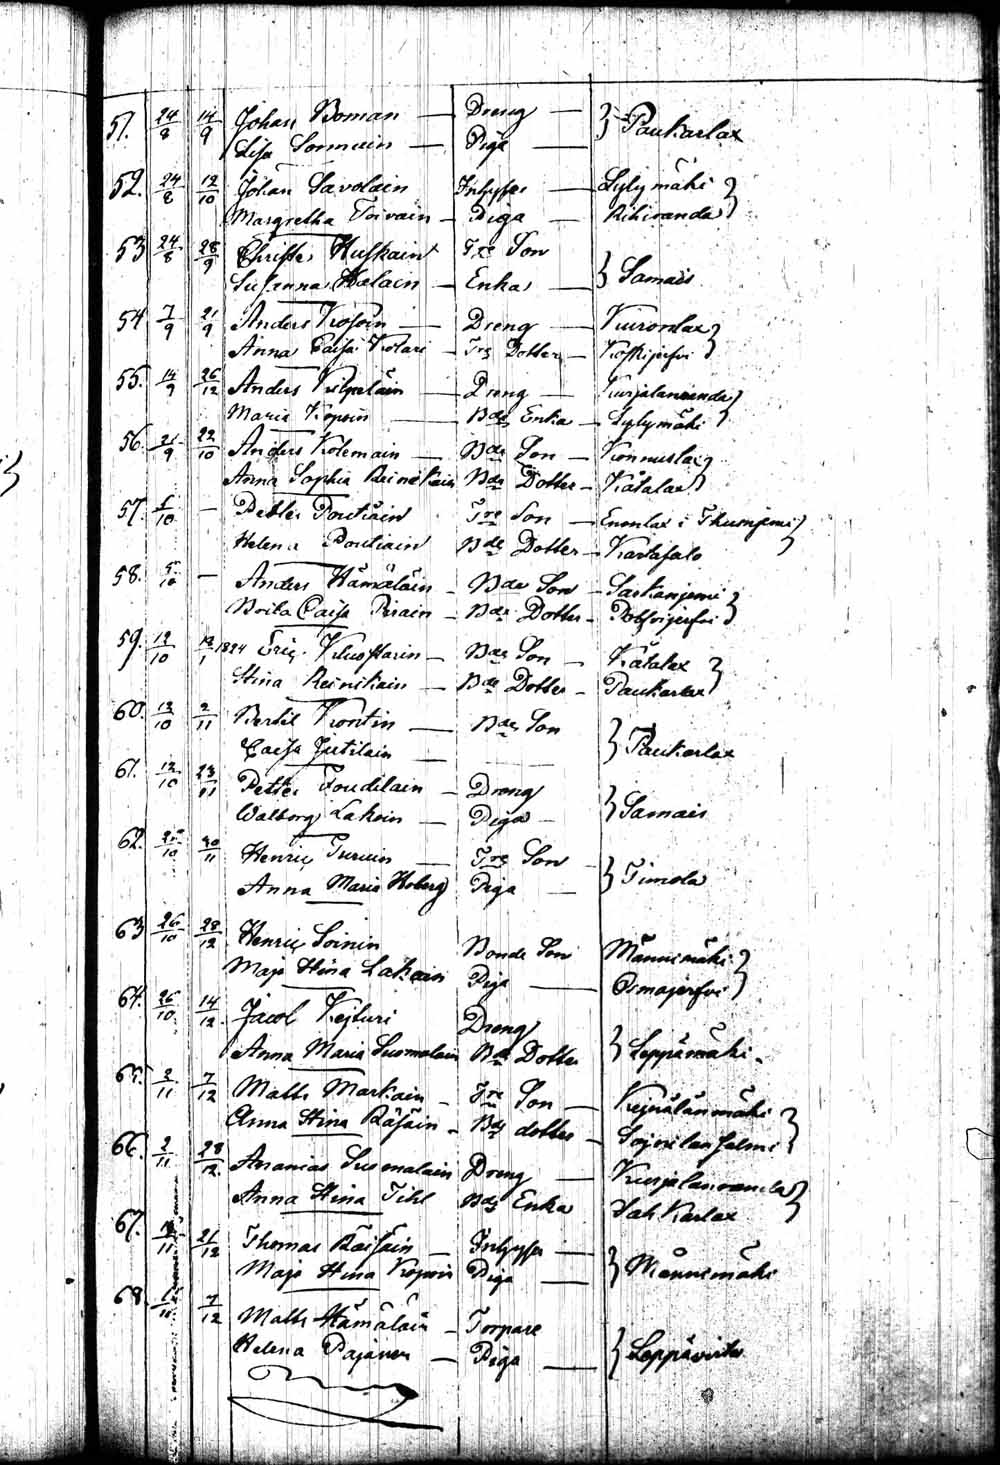 51. 24/8 14/9 Johan Boman — Dreng — } Paukarlax
Lisa Sormuin — Piga —
52. 24/8 12/10 Johan Savolain Inhyses — Lylymäki }
Margretha Toivain — Piga — Rihiranda
53 24/8 28/9 Christer Huskain Tre Son } Samais
Susanna Halain — Enka —
54 7/9 21/9 Anders Kosoin — Dreng — Kuronlax }
Anna Caisa Kolari — Tre Dotter — Koskijerfvi
55. 14/9 26/12 Anders Kilpeläin — Dreng — Kurjalanranda }
Maria Kopoin — Bde Enka — Lylymäki
56. 21/9 22/10 Anders Kolemain — Bde Son — Konnuslax }
Anna Sophia Reinikain Bde Dotter — Kätalax
57. /10 — Petter Poutiain Tre Son — Enonlax i }
Helena Poutiain Bde Dotter —
58. 5/10 — Anders Hämäläin — Bde Son — Sarkanjemi }
Caisa — Bde Dotter —
59. 12/10 12/1 1824 Eric — Bde Son — Kätalax }
Stina Reinikain — Bde Dotter — Paukarlax
60. 12/10 2/11 Bertil Kontin — Bde Son } Paukarlax
Caisa Jutilain —
61. 12/10 23/11 Petter — Dreng } Samais
Walborg Lakoin — Piga —
62. /10 30/11 Henric Turuin — Tre Son — } Timola
Anna Maria Hoberg Piga —
63 26/10 28/12 Henric Soinin Bonde Son Männimäki }
Maja Stina Lakoin Piga — Osmajerfvi
64. 26/10 14/12 Jacob Kejturi Dreng } Leppämäki
Anna Maria Suomalain Bde Dotter
65. 2/11 7/12 Matts Markain — Tre Son — }
Anna Stina Räsäin — Bde dotter —
66. 2/11 28/12 Ananias Suomalain Dreng — Kurjalanranda }
Anna Stina Tihl Bde Enka
67. /11 21/12 Thomas Räisäin — Inhyses — } Männimäki
Maja Stina Kopoin Piga —
68 7/12 Matts Hämäläin — Torpare } Leppävirta
Helena Pajanen — Piga —